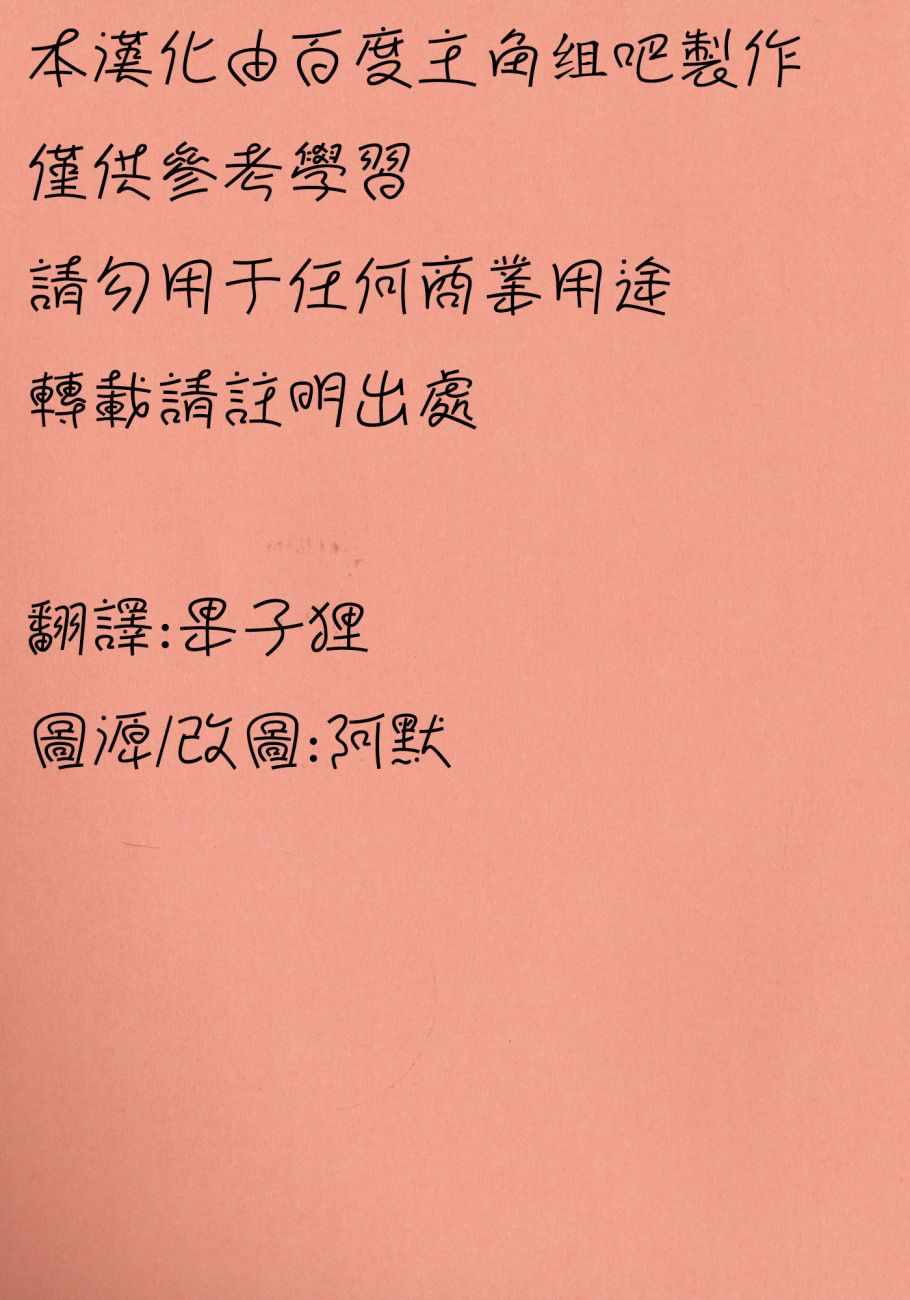 本漢化由百度主角组吧製作
僅供參考學習
請勿用于任何商業用途
轉載請註明出處
翻譯:果子狸
圖源/改圖:阿默